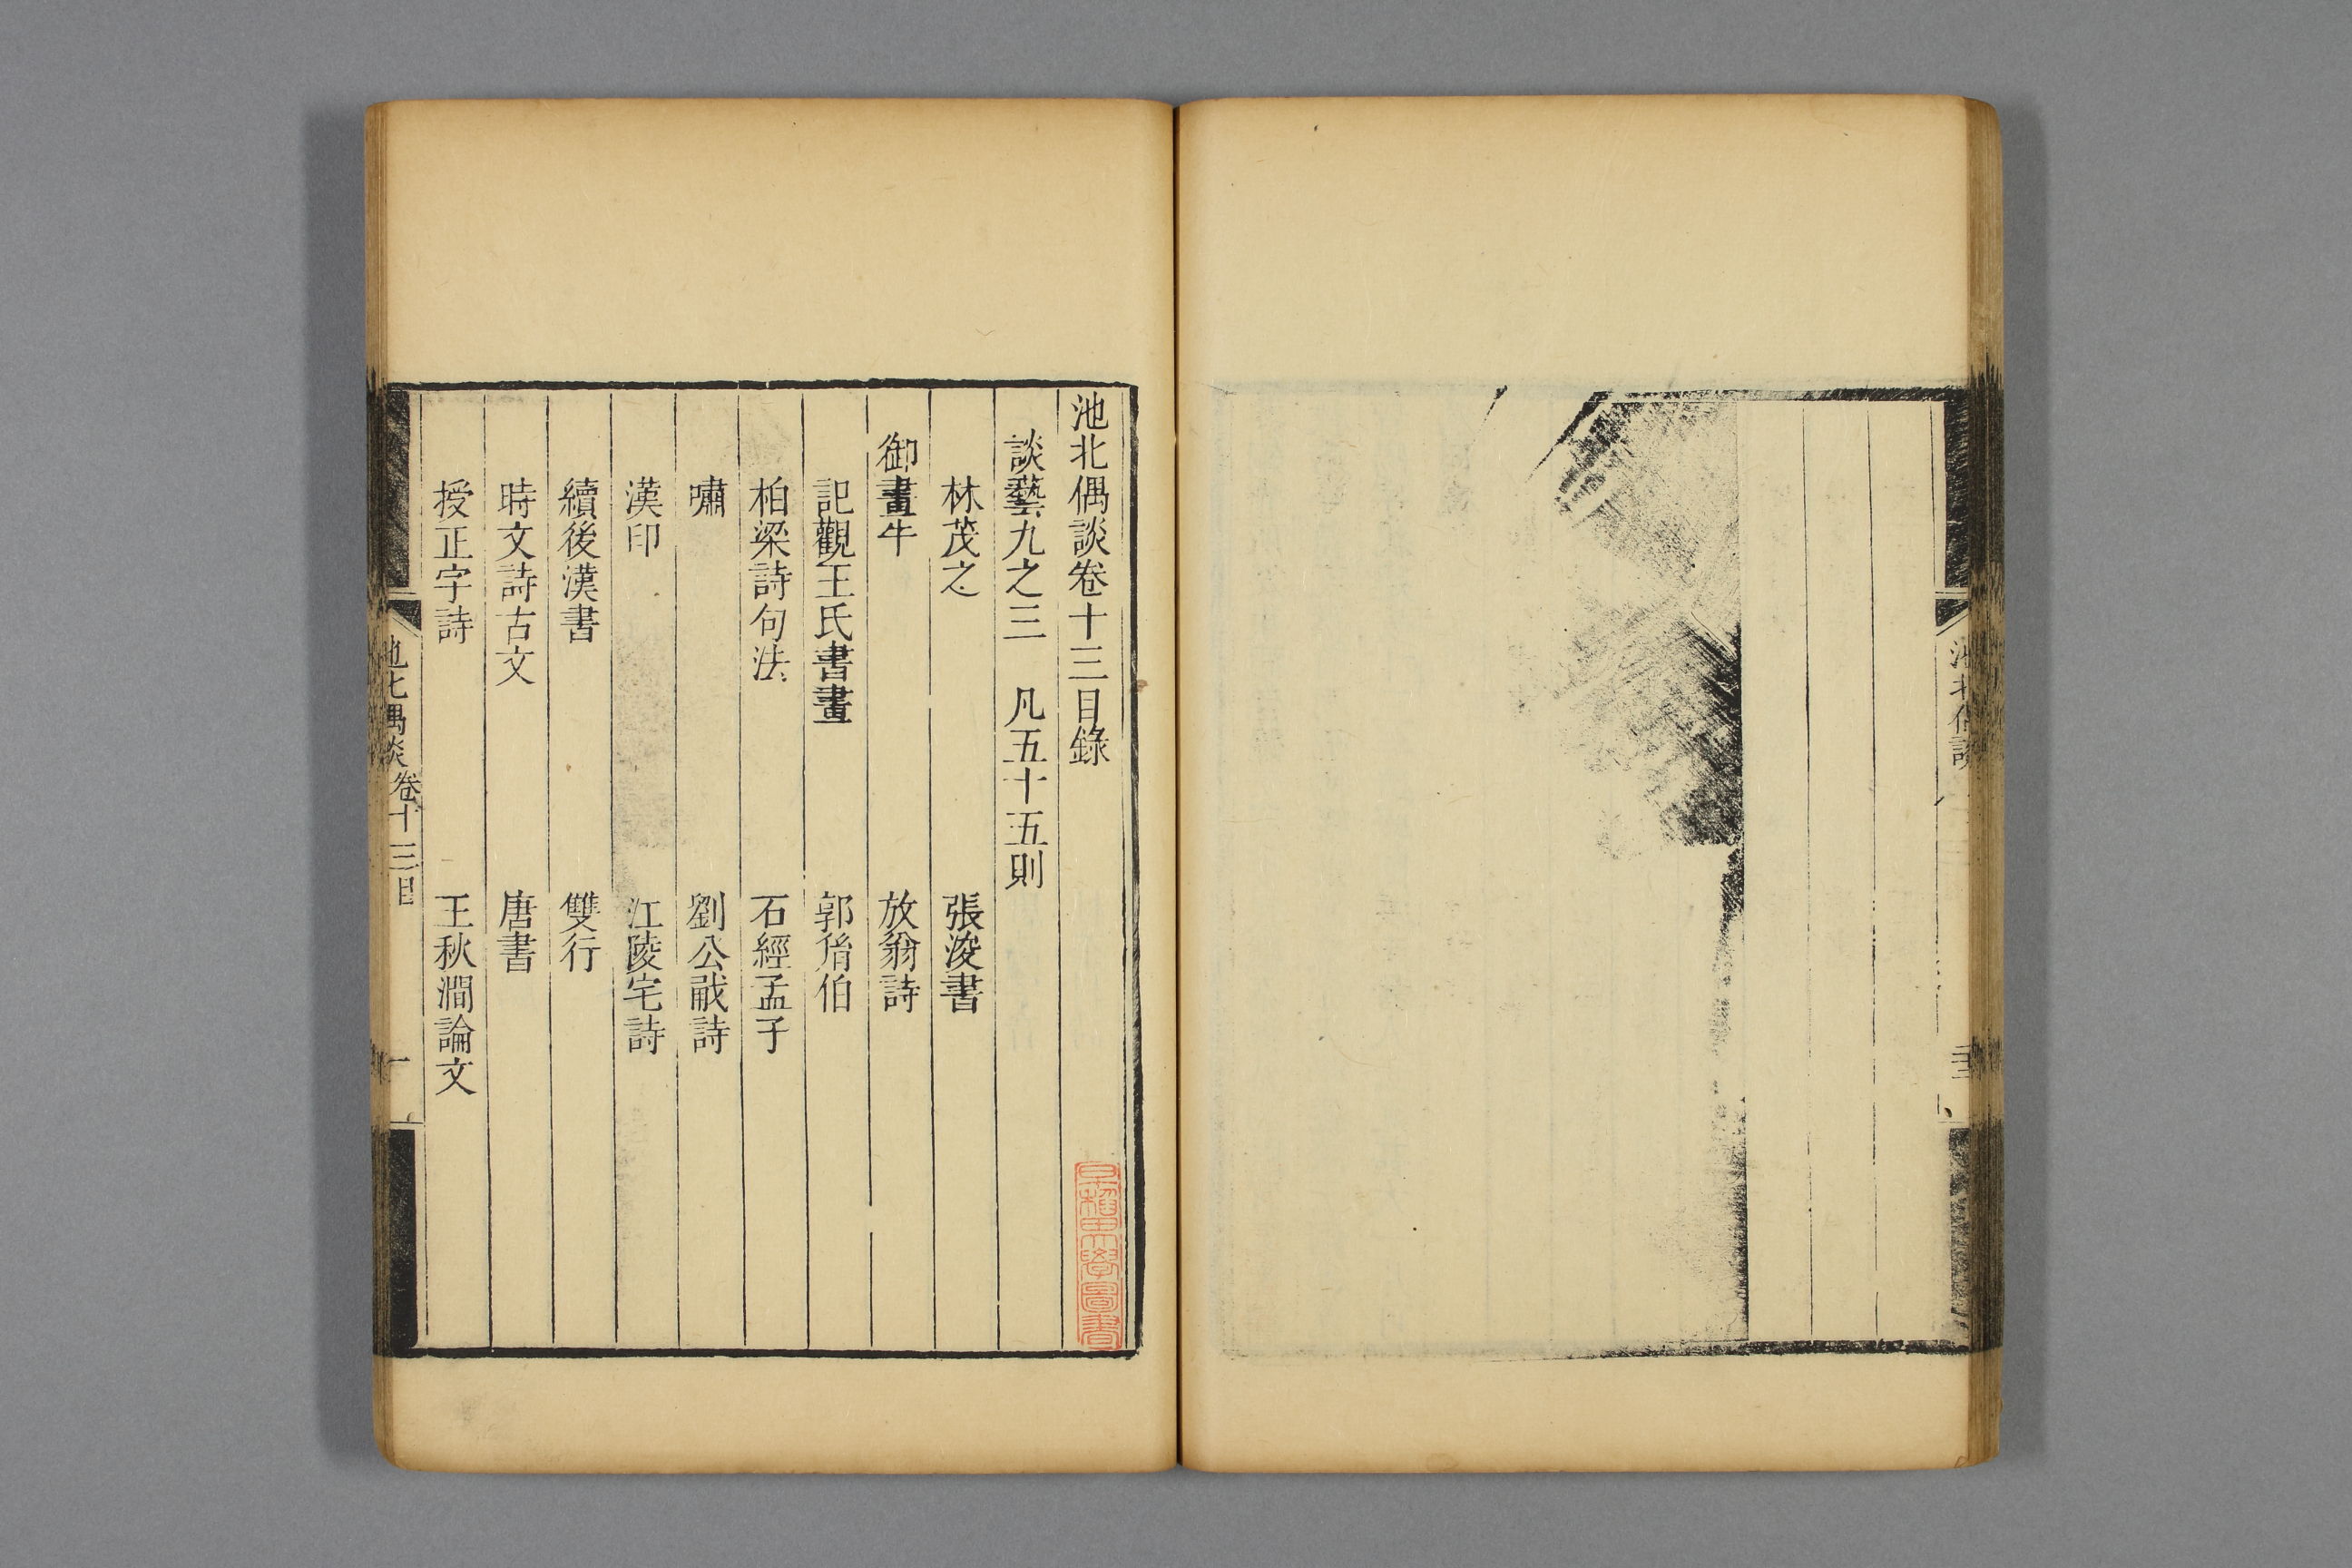 池北偶談卷十三目錄
談藝九之三　凡五十五則
林茂之　張浚書
御畫牛　放翁詩
記觀王氏書畫　郭胥伯
柏梁詩句法　石經孟子
嘯　劉公㦷詩
漢印　江陵宅詩
續後漢書　雙行
時文詩古文　唐書
授正字詩　王秋澗論文
池北偶談　卷十三目　一
早稻田大學圖書
池北偶談